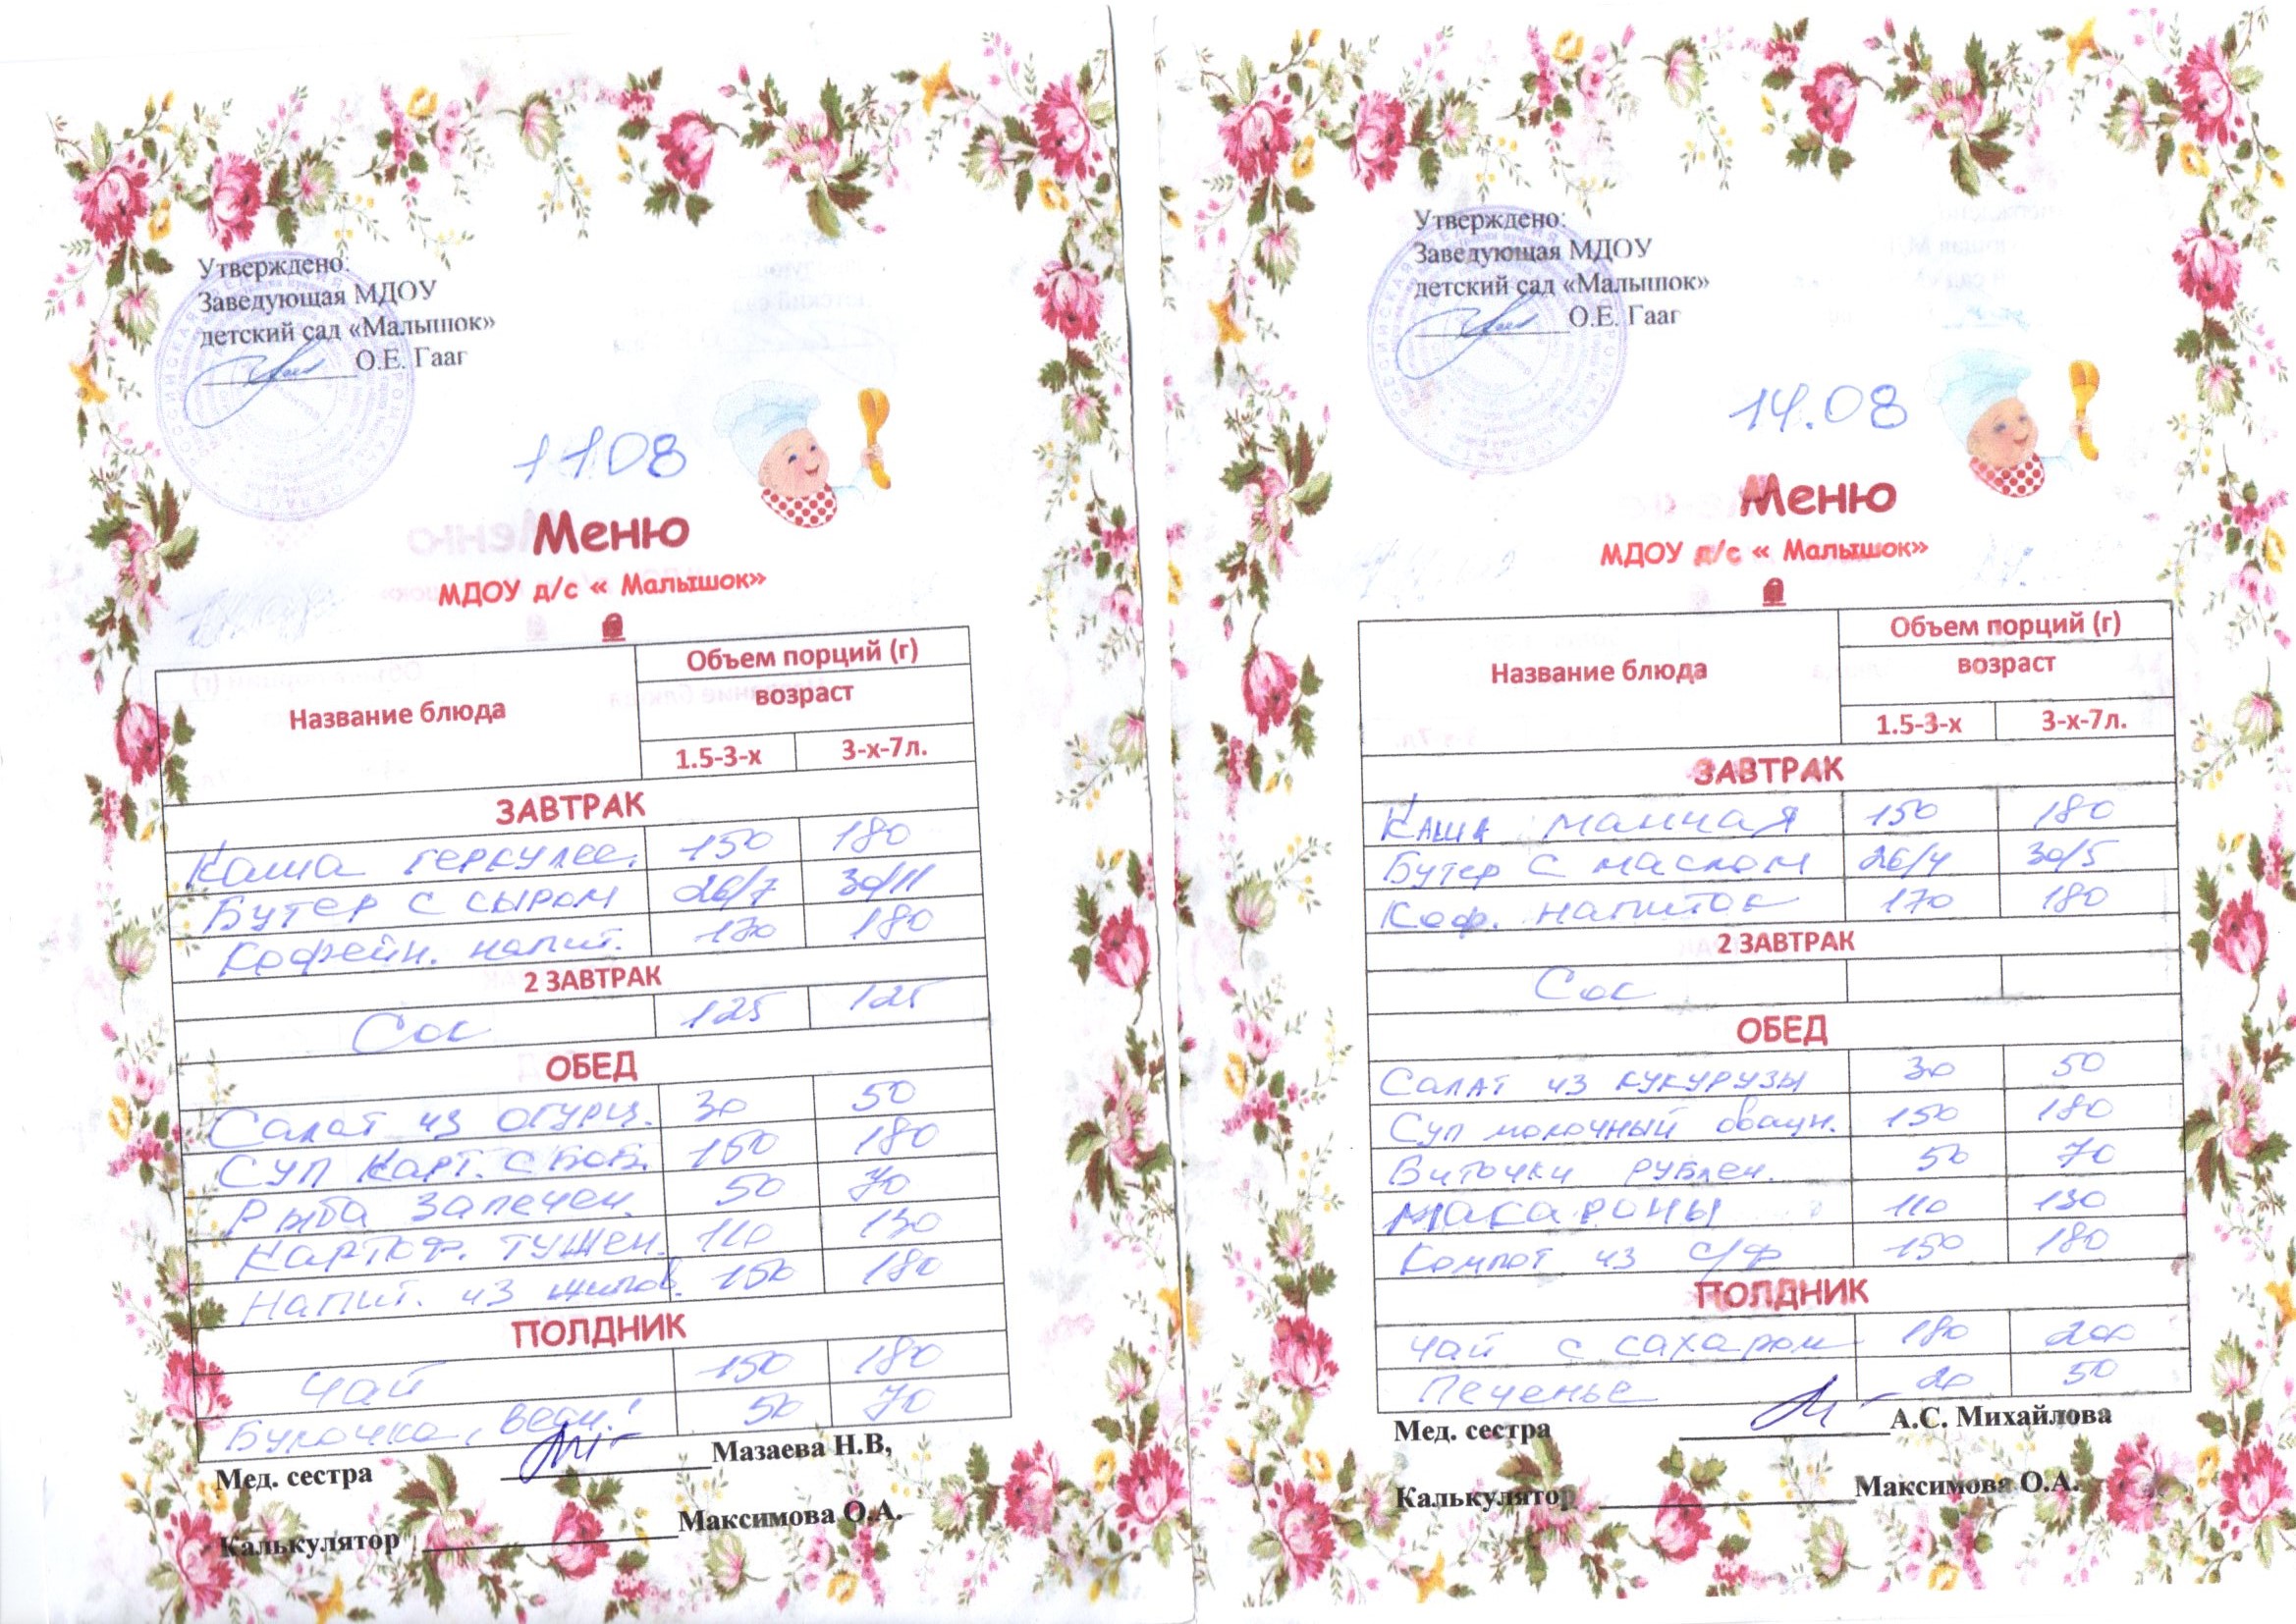 Утверждено:
Заведующая МДОУ
детский сад «Малышок»
О.Е. Гааг
11.08
Меню
МДОУ д/с « Малышок»
Название блюда
Объем порций (г)
возраст
1.5-3-х 3-х-7л.
ЗАВТРАК
Каша геркулес. 150 180
Бутер с сыром 26/7 30/11
Кофейн. напит. 170 180
2 ЗАВТРАК
Сок 125 125
ОБЕД
Салат из огурц. 30 50
Суп карт. с боб. 150 180
Рыба запечен. 50 70
Картоф. тушен. 110 130
Напит. из шипов. 150 180
ПОЛДНИК
Чай 150 180
Булочка, 50 70
Мед. сестра Мазаева Н.В,
Калькулятор Максимова О.А.
Утверждено:
Заведующая МДОУ
детский сад «Малышок»
О.Е. Гааг
14.08
Меню
МДОУ д/с « Малышок»
Название блюда
Объем порций (г)
возраст
1.5-3-х 3-х-7л.
ЗАВТРАК
Каша манная 150 180
Бутер с маслом 26/4 30/5
Коф. напиток 170 180
2 ЗАВТРАК
Сок
ОБЕД
Салат из кукурузы 30 50
Суп молочный 150 180
Биточки рублен. 50 70
Макароны 110 130
Компот из с/ф 150 180
ПОЛДНИК
Чай с сахаром 180 200
Печенье 20 50
Мед. сестра А.С. Михайлова
Калькулятор Максимова О.А.